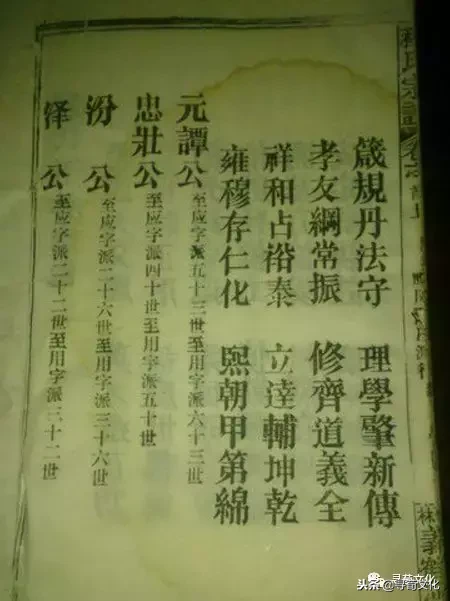 氏宗譜
箴規丹法守 理學肇新傳
孝友綱常振 修齊道義全
祥和占裕泰 立逹輔坤乾
雍穆存仁化 熙朝甲第綿
元譚公 至应字派五十三世至用字派六十三世
忠壯公 至应字派四十世至用字派五十世
汾公 至应字派二十六世至用字派三十六世
泽公 至应字派二十二世至用字派三十二世
寻荀文化
头条@寻荀文化